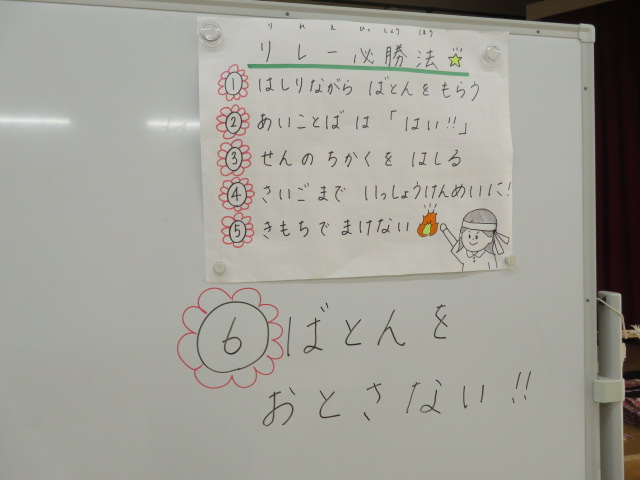 りれえ ひっしょうほう
リレー必勝法
① はしりながら ばとんを もらう
② あいことば は 「はい!!」
③ せんの ちかくを はしる
④ さいごまで いっしょうけんめいに!
⑤ きもちで まけない
⑥ ばとんを
おとさない!!